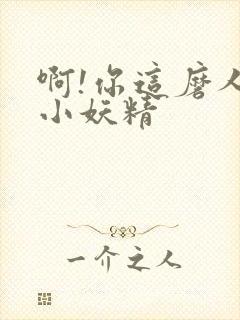 啊!你這磨人
小妖精
一介之人